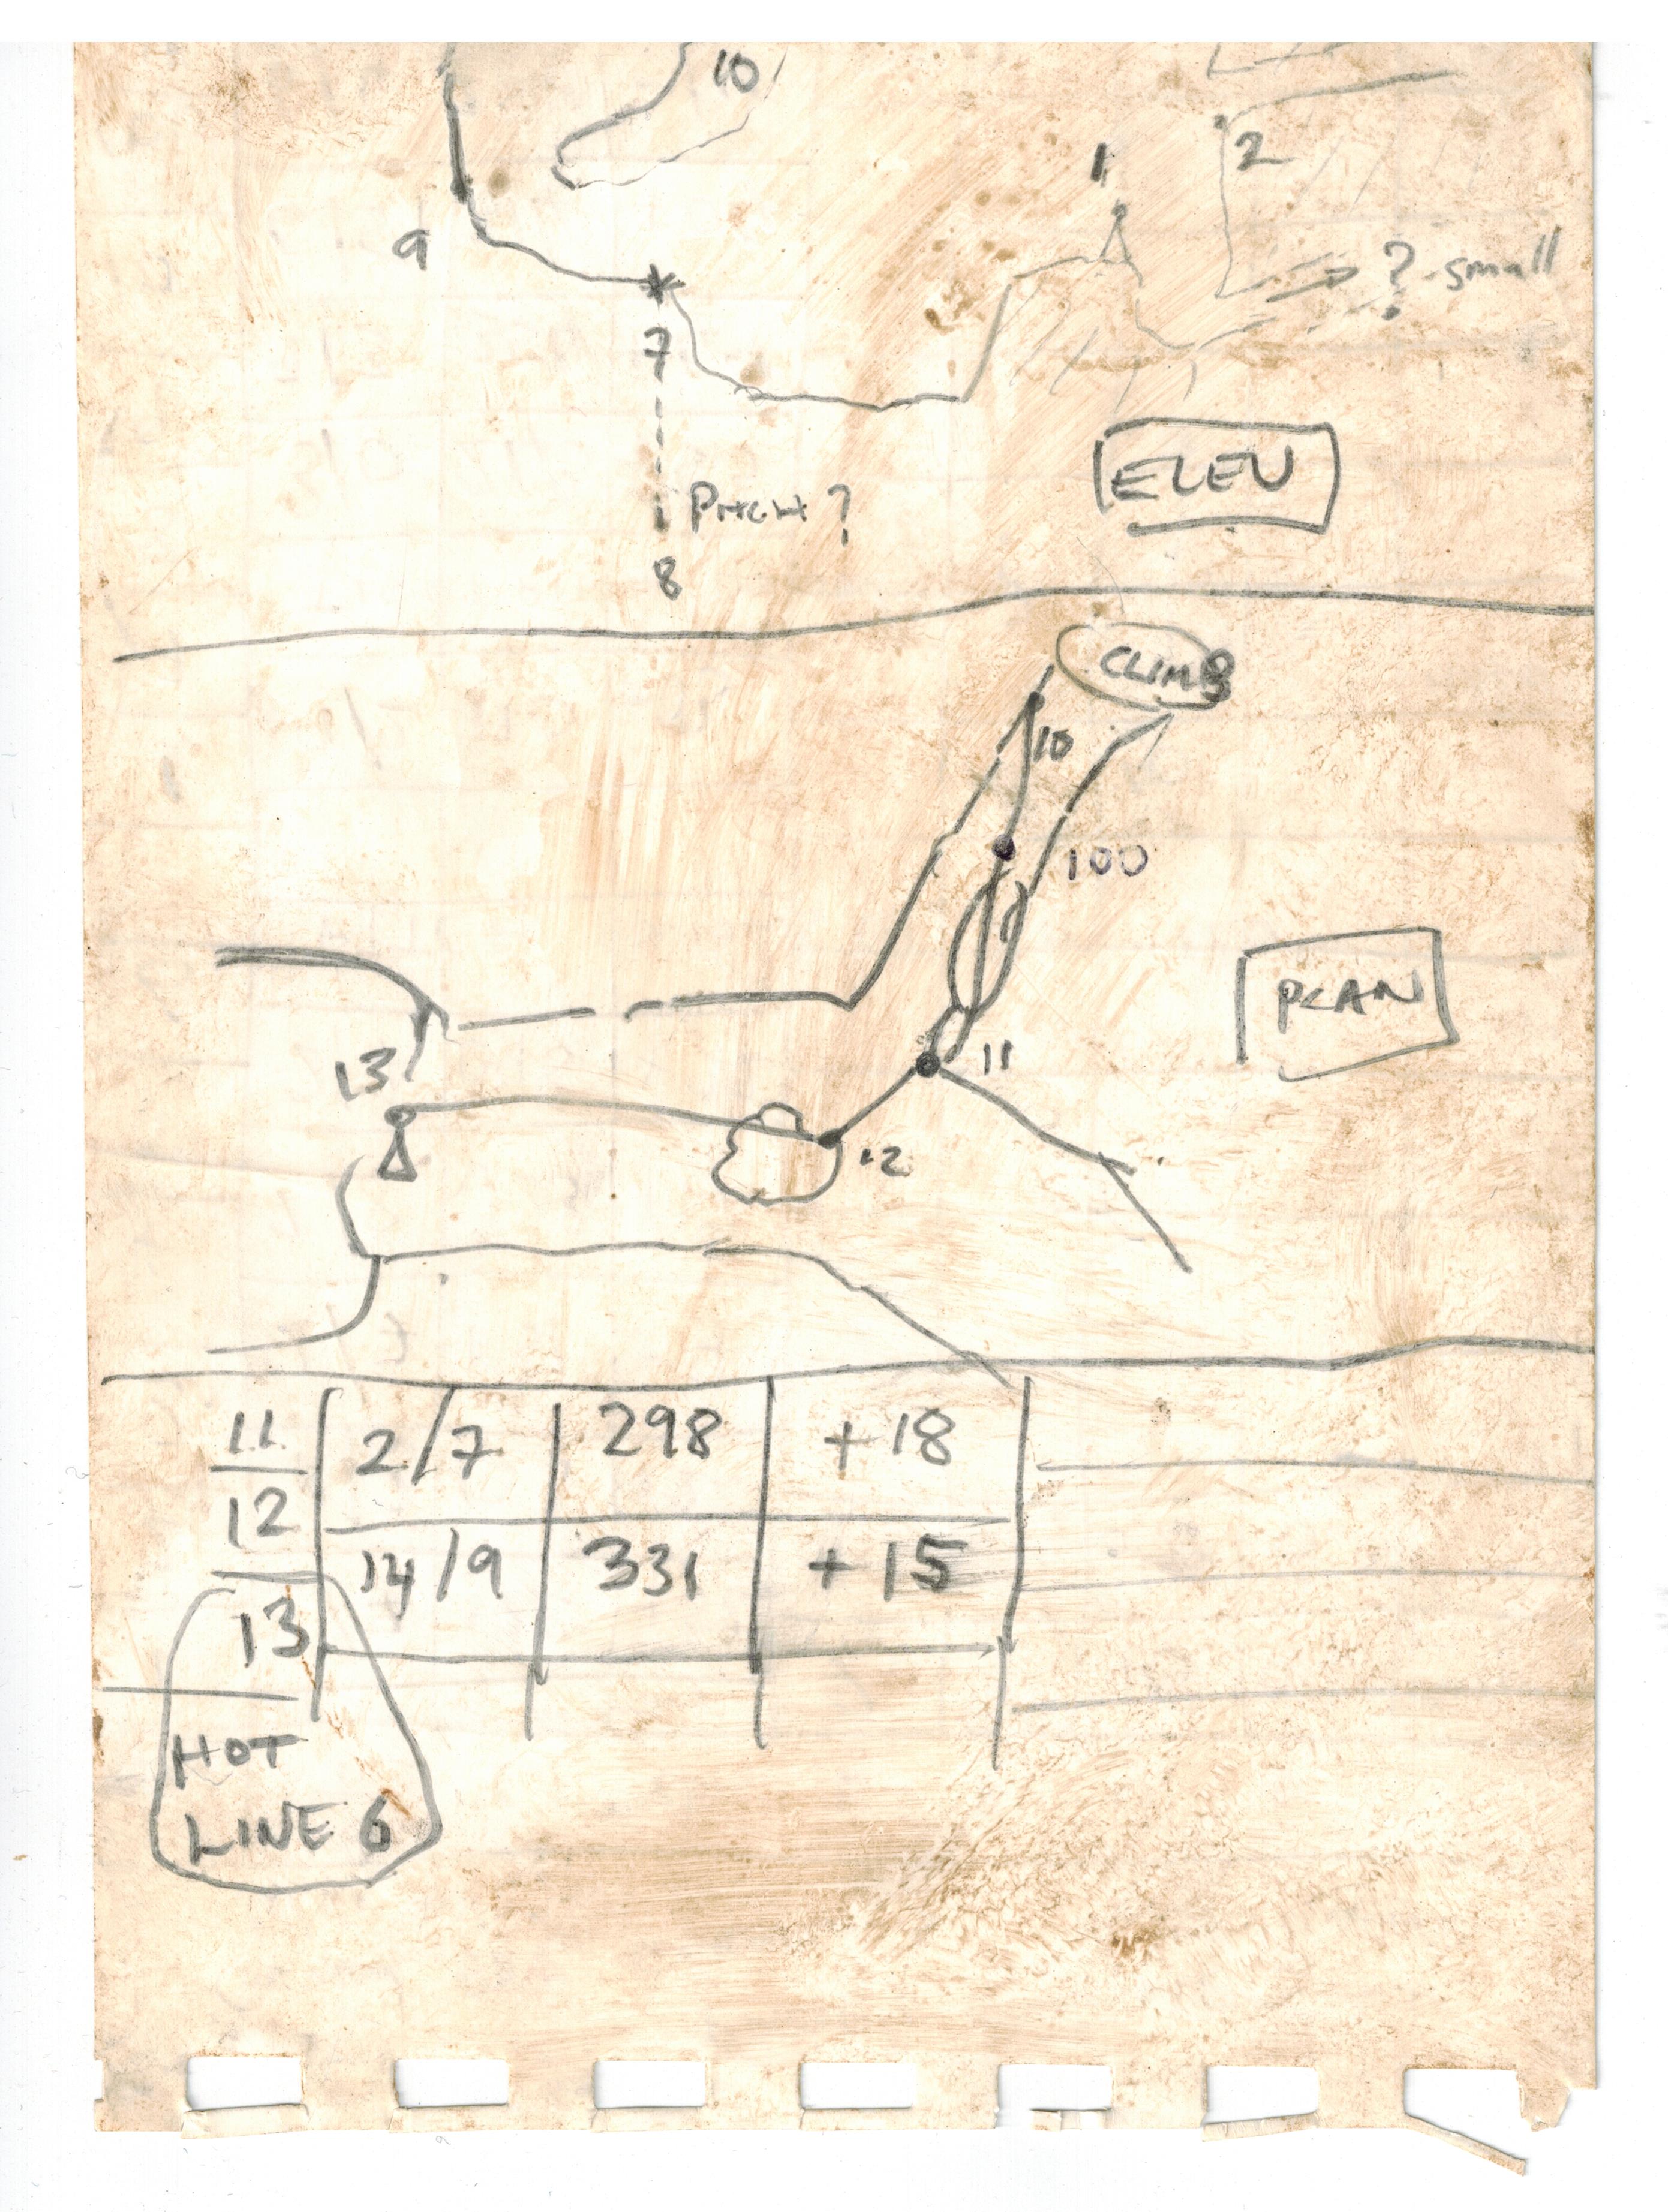 10
1
2
9
? small
7
ELEV
PITCH ?
8
CLIMB
10
100
PLAN
11
13
12
11 2/7 298 +18
12
14/9 331 +15
13
HOT
LINE 6